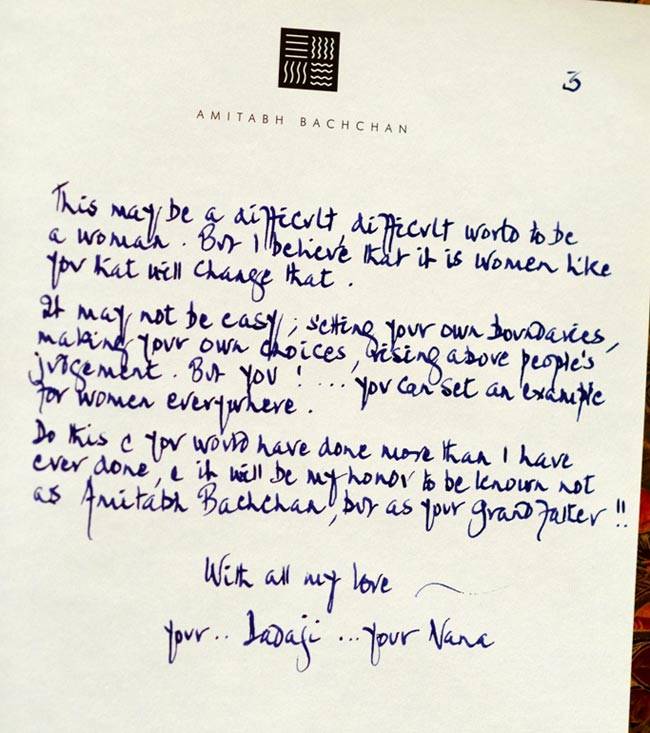 3
AMITABH BACHCHAN
This may be a difficult, difficult world to be
a woman. But I believe that it is women like
you that will change that.
It may not be easy; setting your own boundaries,
making your own choices, rising above people's
judgement. But you! .... you can set an example
for women everywhere.
Do this & you would have done more than I have
ever done, & it will be my honor to be known not
as Amitabh Bachchan, but as your grandfather!!
With all my love
your.. Dadaji ... your Nana